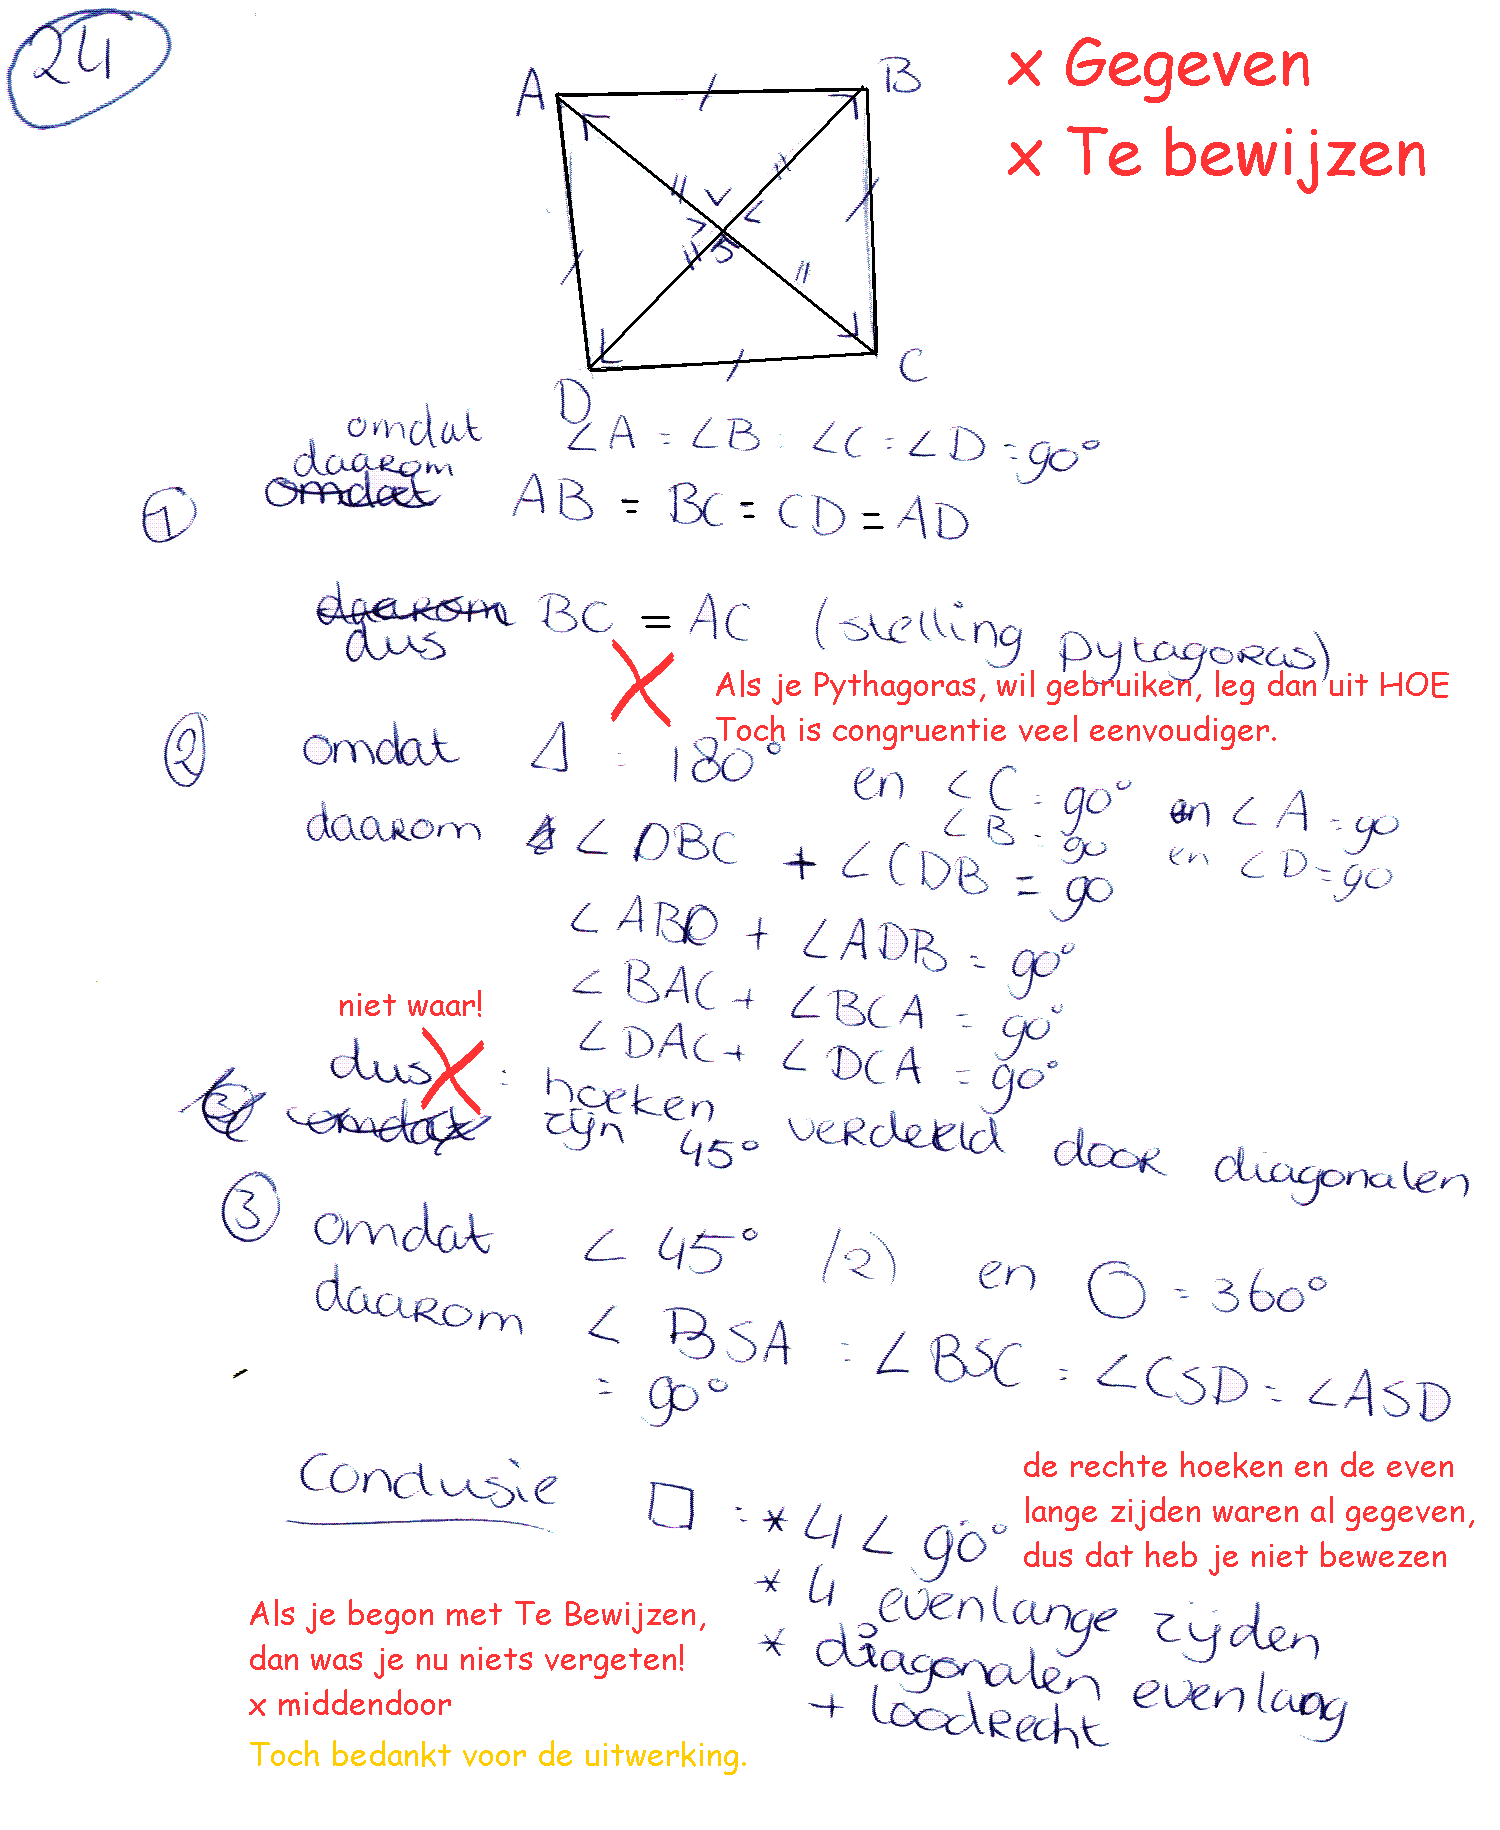 24
A
B
x Gegeven
x Te bewijzen
S
C
D
omdat ∠A = ∠B = ∠C = ∠D = 90°
daarom
① omdat AB = BC = CD = AD
daarom BC = AC (stelling pytagoras)
dus
Als je Pythagoras, wil gebruiken, leg dan uit HOE
Toch is congruentie veel eenvoudiger.
② omdat Δ = 180° en ∠C = 90° en ∠A = 90
∠B = 90 en ∠D = 90
daarom ∠DBC + ∠CDB = 90
∠ABD + ∠ADB = 90°
∠BAC + ∠BCA = 90°
∠DAC + ∠DCA = 90°
niet waar!
dus : hoeken
omdat zijn 45° verdeeld door diagonalen
③ omdat ∠ 45° (2) en O = 360°
daarom ∠ BSA = ∠BSC = ∠CSD = ∠ASD
= 90°
Conclusie □ = * 4 ∠ 90°
de rechte hoeken en de even
lange zijden waren al gegeven,
dus dat heb je niet bewezen
* 4 evenlange zijden
* diagonalen evenlang
+ loodrecht
Als je begon met Te Bewijzen,
dan was je nu niets vergeten!
x middendoor
Toch bedankt voor de uitwerking.